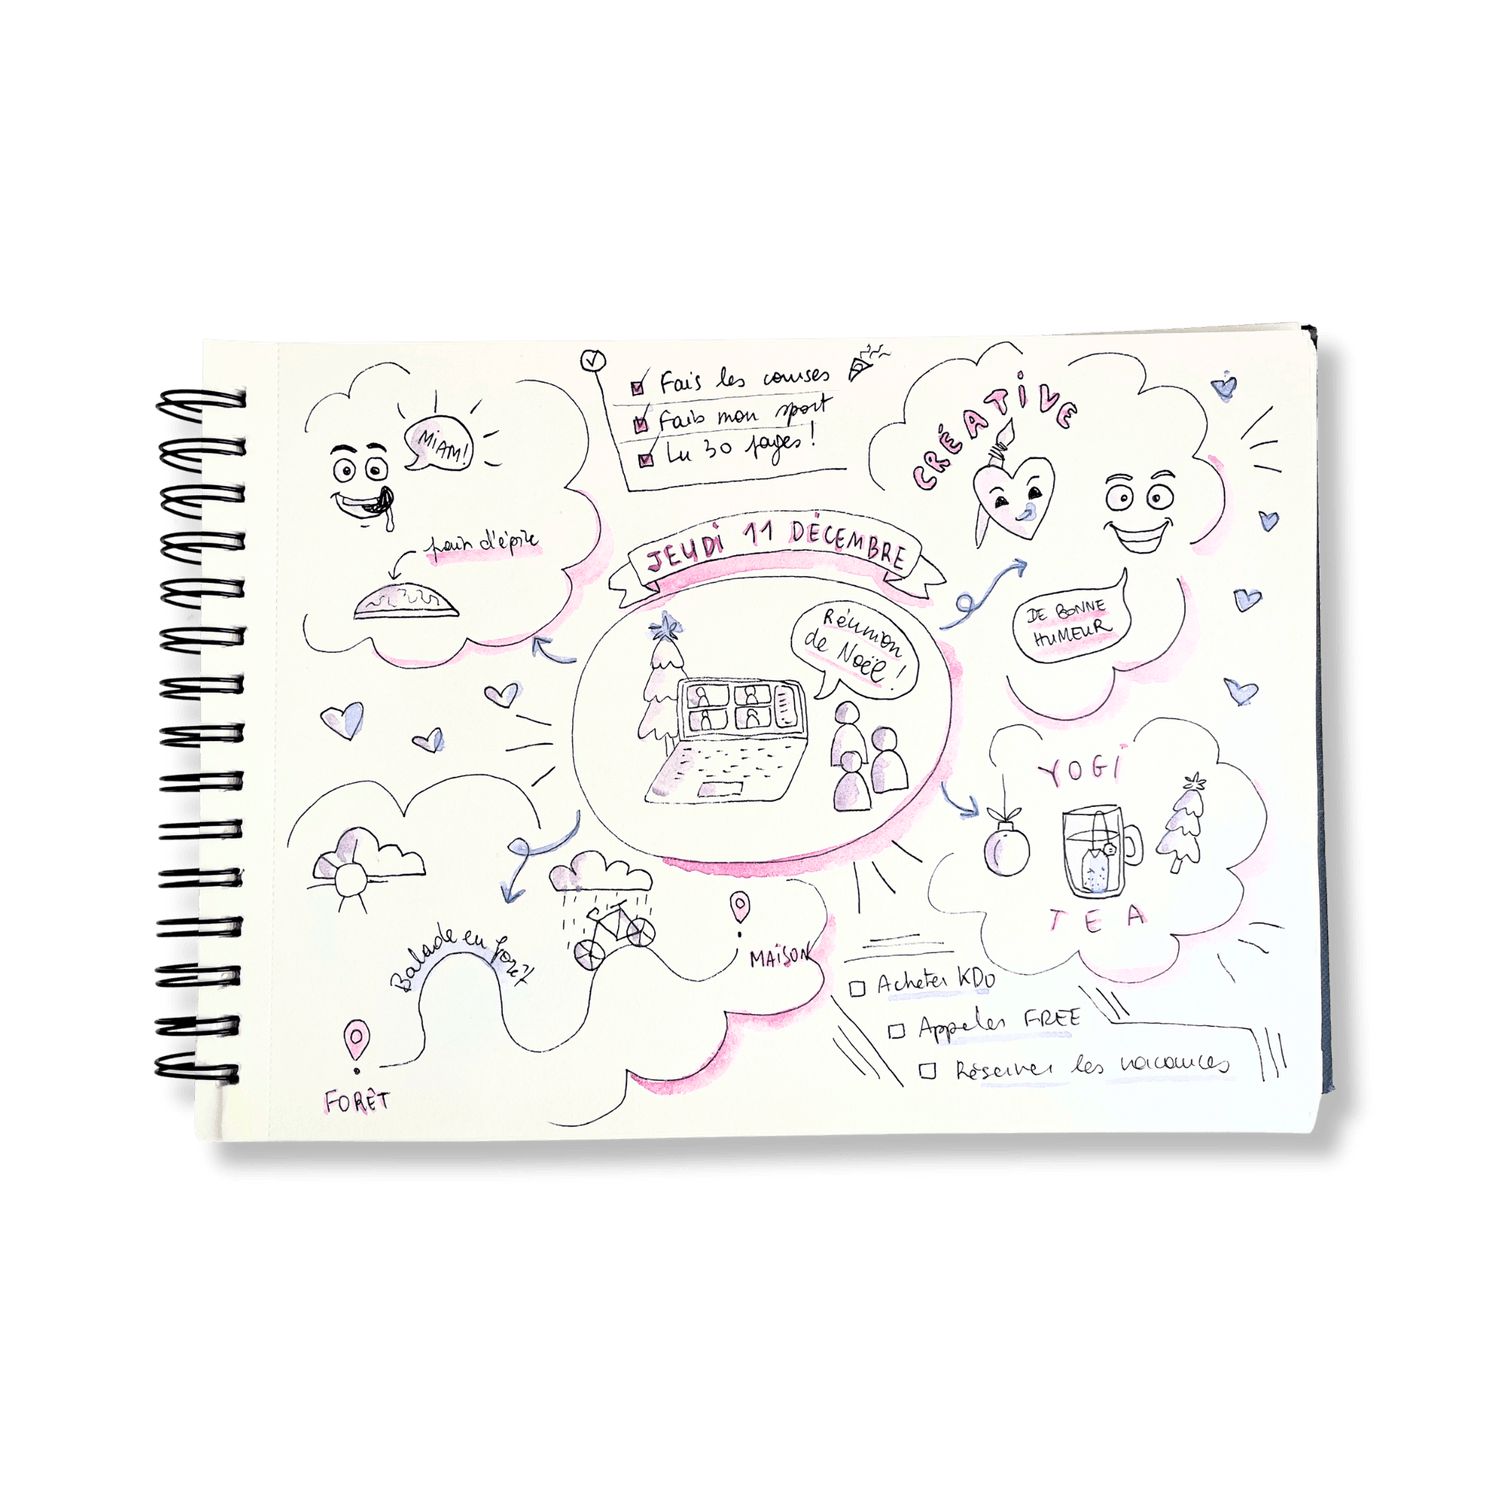 MIAM!
pain d'épice
Fais les courses
Fais mon sport
Lu 30 pages!
CRÉATIVE
DE BONNE
HUMEUR
JEUDI 11 DÉCEMBRE
Réunion
de Noël!
YOGI
TEA
Balade en forêt
FORÊT
MAISON
Acheter KDO
Appeler FREE
Réserver les vacances